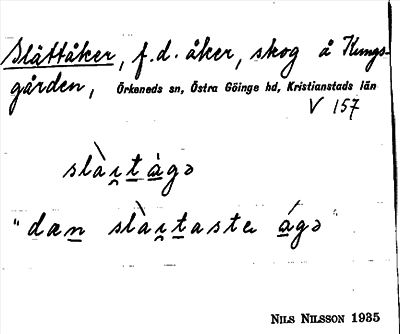 Slättåker, f.d. åker, skog å Kungs-
gården, Örkeneds sn, Östra Göinge hd, Kristianstads län
V 157
slàı̯ṯàgə
"daṉ slàı̯ṯasta ágə"
NILS NILSSON 1935